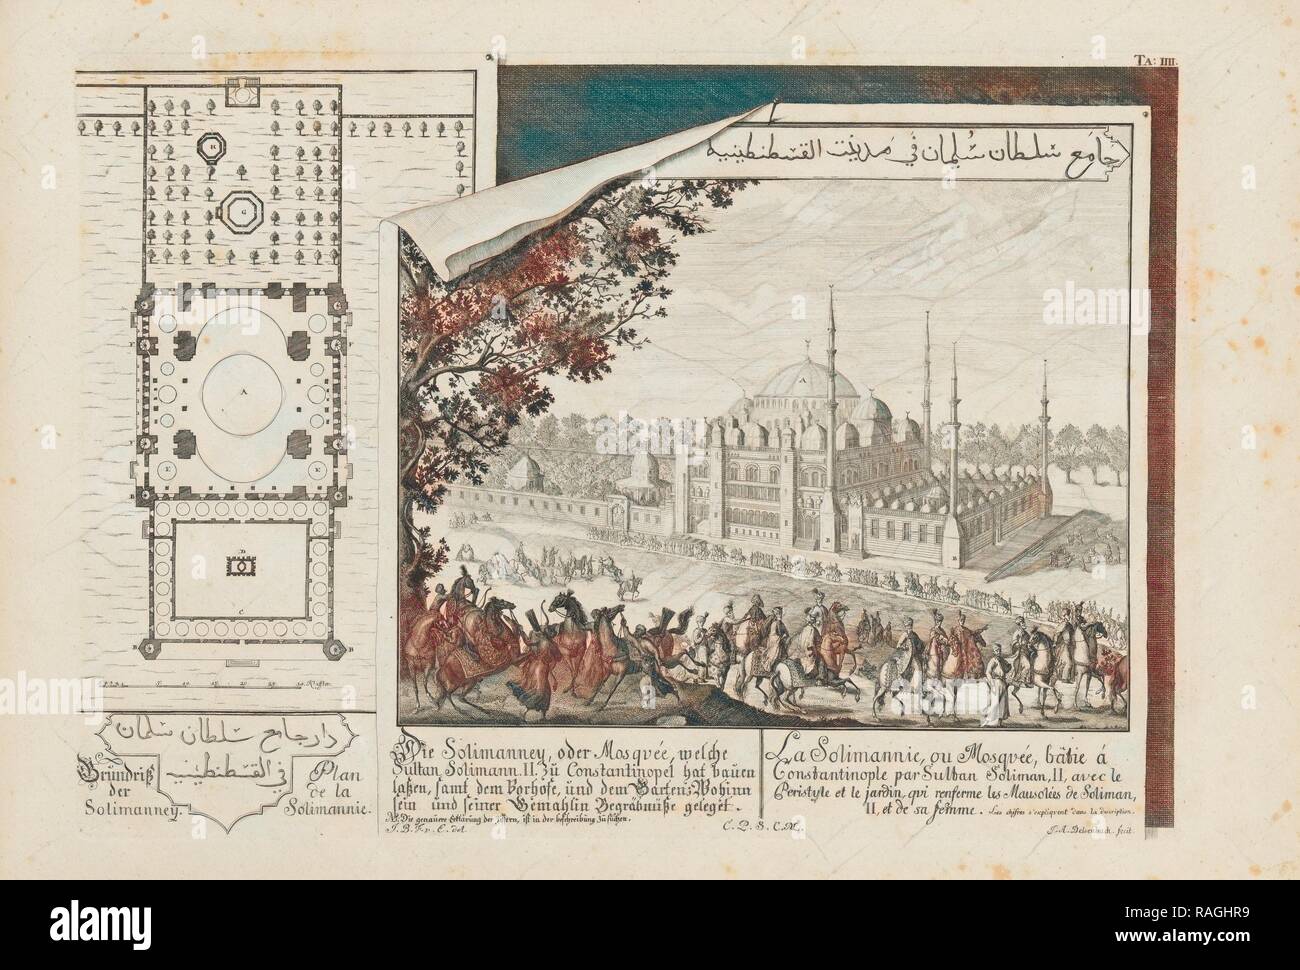 TA: IIII.
جامع سلطان سلمان في مدينت القسطنطينية
دار جامع سلطان سلمان
في القسطنطينية
Grundriß der Solimanney.
Plan de la Solimannie.
Die Solimanney, oder Mosqvée, welche
Sultan Solimann. II. zu Constantinopel hat bauen
laßen, samt dem Vorhofe, und dem Garten; Wohinn
sein und seiner Gemahlin Begräbnüße geleget.
J. B. F. v. E. del.
C. P. S. C. M.
La Solimannie, ou Mosqvée, bâtie á
Constantinople par Sultan Soliman, II, avec le
Peristyle et le jardin, qvi renferme les Mausolées de Soliman,
II. et de sa femme. Les chifres s'expliquent dans la description.
J. A. Delsenbach. fecit.
alamy
Image ID: RAGHR9
www.alamy.com